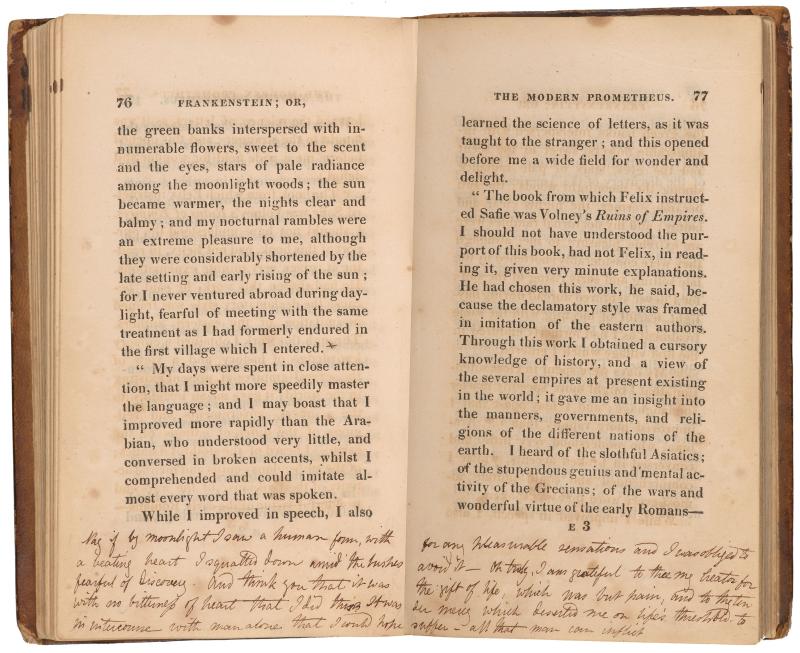 76 FRANKENSTEIN; OR,
the green banks interspersed with in-
numerable flowers, sweet to the scent
and the eyes, stars of pale radiance
among the moonlight woods; the sun
became warmer, the nights clear and
balmy; and my nocturnal rambles were
an extreme pleasure to me, although
they were considerably shortened by the
late setting and early rising of the sun;
for I never ventured abroad during day-
light, fearful of meeting with the same
treatment as I had formerly endured in
the first village which I entered. ×
“ My days were spent in close atten-
tion, that I might more speedily master
the language; and I may boast that I
improved more rapidly than the Ara-
bian, who understood very little, and
conversed in broken accents, whilst I
comprehended and could imitate al-
most every word that was spoken.
While I improved in speech, I also
Nay if by moonlight I saw a human form, with
a beating heart I squatted down amid the bushes
fearful of discovery. And think you that it was
with no bitterness of heart that I did this? It was
in intercourse with man alone that I could hope
THE MODERN PROMETHEUS. 77
learned the science of letters, as it was
taught to the stranger; and this opened
before me a wide field for wonder and
delight.
“ The book from which Felix instruct-
ed Safie was Volney's Ruins of Empires.
I should not have understood the pur-
port of this book, had not Felix, in read-
ing it, given very minute explanations.
He had chosen this work, he said, be-
cause the declamatory style was framed
in imitation of the eastern authors.
Through this work I obtained a cursory
knowledge of history, and a view of
the several empires at present existing
in the world; it gave me an insight into
the manners, governments, and reli-
gions of the different nations of the
earth. I heard of the slothful Asiatics;
of the stupendous genius and mental ac-
tivity of the Grecians; of the wars and
wonderful virtue of the early Romans—
E 3
for any pleasurable sensations and I was obliged to
avoid it — Oh truly, I am grateful to thee my Creator for
the gift of life, which was but pain, and to thy ten
der mercy which deserted me on life's threshold to
suffer — all that man can inflict